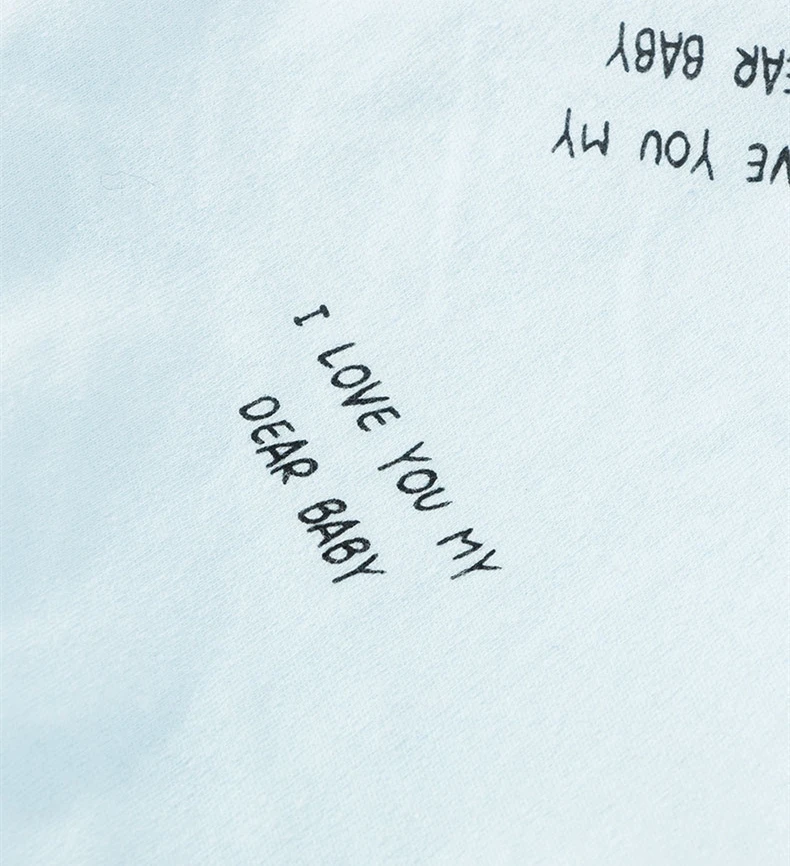 VE YOU MY
EAR BABY
I LOVE YOU MY
DEAR BABY